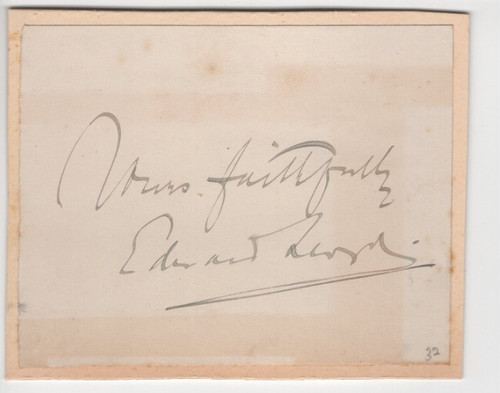 Yours faithfully
Edward
32